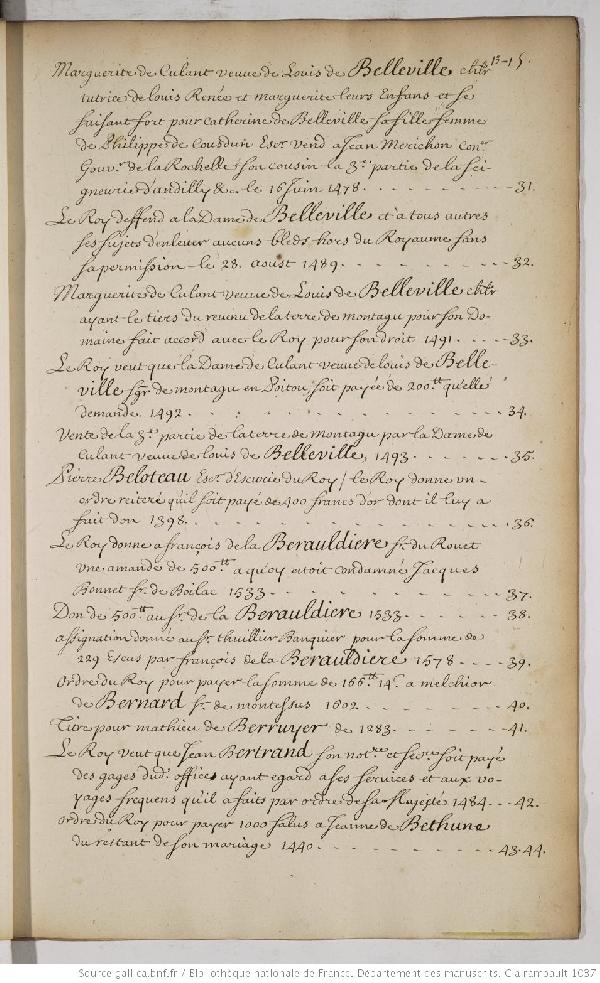 13-15.
Marguerite de Culant veuve de Louis de Belleville chlr
tutrice de Louis Renée et marguerite leurs Enfans et se
faisant fort pour Catherine de Belleville sa fille femme
de Philippe de Coursdun Escr vend a Jean Merichon Conr
Gouvr de la Rochelle son cousin la 3e partie de la sei-
gneurie d'andilly &c. le 16 Juin 1478. - - - - - - 31.
Le Roy deffend a la Dame de Belleville et a tous autres
ses sujets d'enlever aucuns bleds hors du Royaume sans
sa permission le 28. aoust 1489. - - - - - - 32.
Marguerite de Culant veuve de Louis de Belleville chlr
ayant le tiers du revenu de la terre de montagu pour son Do-
maine fait accord avec le Roy pour son droit 1491. - - - 33.
Le Roy veut que la Dame de Culant veuve de louis de Belle-
ville sgr de montagu en Poitou soit payée de 200tt qu'elle
demande. 1492. - - - - - - 34.
Vente de la 3e partie de la terre de Montagu par la Dame de
Culant veuve de louis de Belleville, 1493. - - - - 35.
Pierre Beloteau Escr d'Escurie du Roy / le Roy donne un
ordre reiteré qu'il soit payé de 400 francs d'or dont il luy a
fait don 1398. - - - - - - 36.
Le Roy donne a françois de la Berauldiere sr. du Rouet
une amande de 500tt a quoy etoit condamné Jacques
Bonnet sr. de Boilac 1533. - - - - - - 37.
Don de 500tt au sr. de la Berauldiere 1533. - - - - 38.
assignation donné au sr thuillier Banquier pour la somme de
229 Escus par françois de la Berauldiere 1578 - - - - 39.
ordre du Roy pour payer la somme de 166tt 14s. a melchior
de Bernard sr. de montessus 1602. - - - - - - 40.
Titre pour mathieu de Berruyer de 1283. - - - - - - 41.
Le Roy veut que Jean Bertrand son notre et secre soit payé
des gages dud. offices ayant egard a ses services et aux vo-
yages frequens qu'il a faits par ordre de sa Majesté 1484. - - 42.
ordre du Roy pour payer 1000 salus a Jeanne de Bethune
du restant de son mariage 1440. - - - - - - 43.44.
Source gallica.bnf.fr / Bibliothèque nationale de France. Département des manuscrits. Clairambault 1037